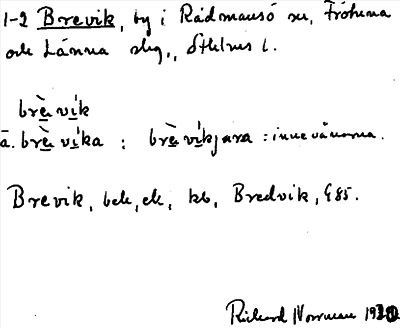 1-2 Brevik, by i Rådmansö sn, Fröluna
och Länna slg., Sthlms l.
brè̱ vi̱k
ä. brè̱ vi̱ka : brè̱ vi̱kjara : innevånarna.
Brevik, bek, ek, kb, Bredvik, G85.
Rickard Norrman 1930